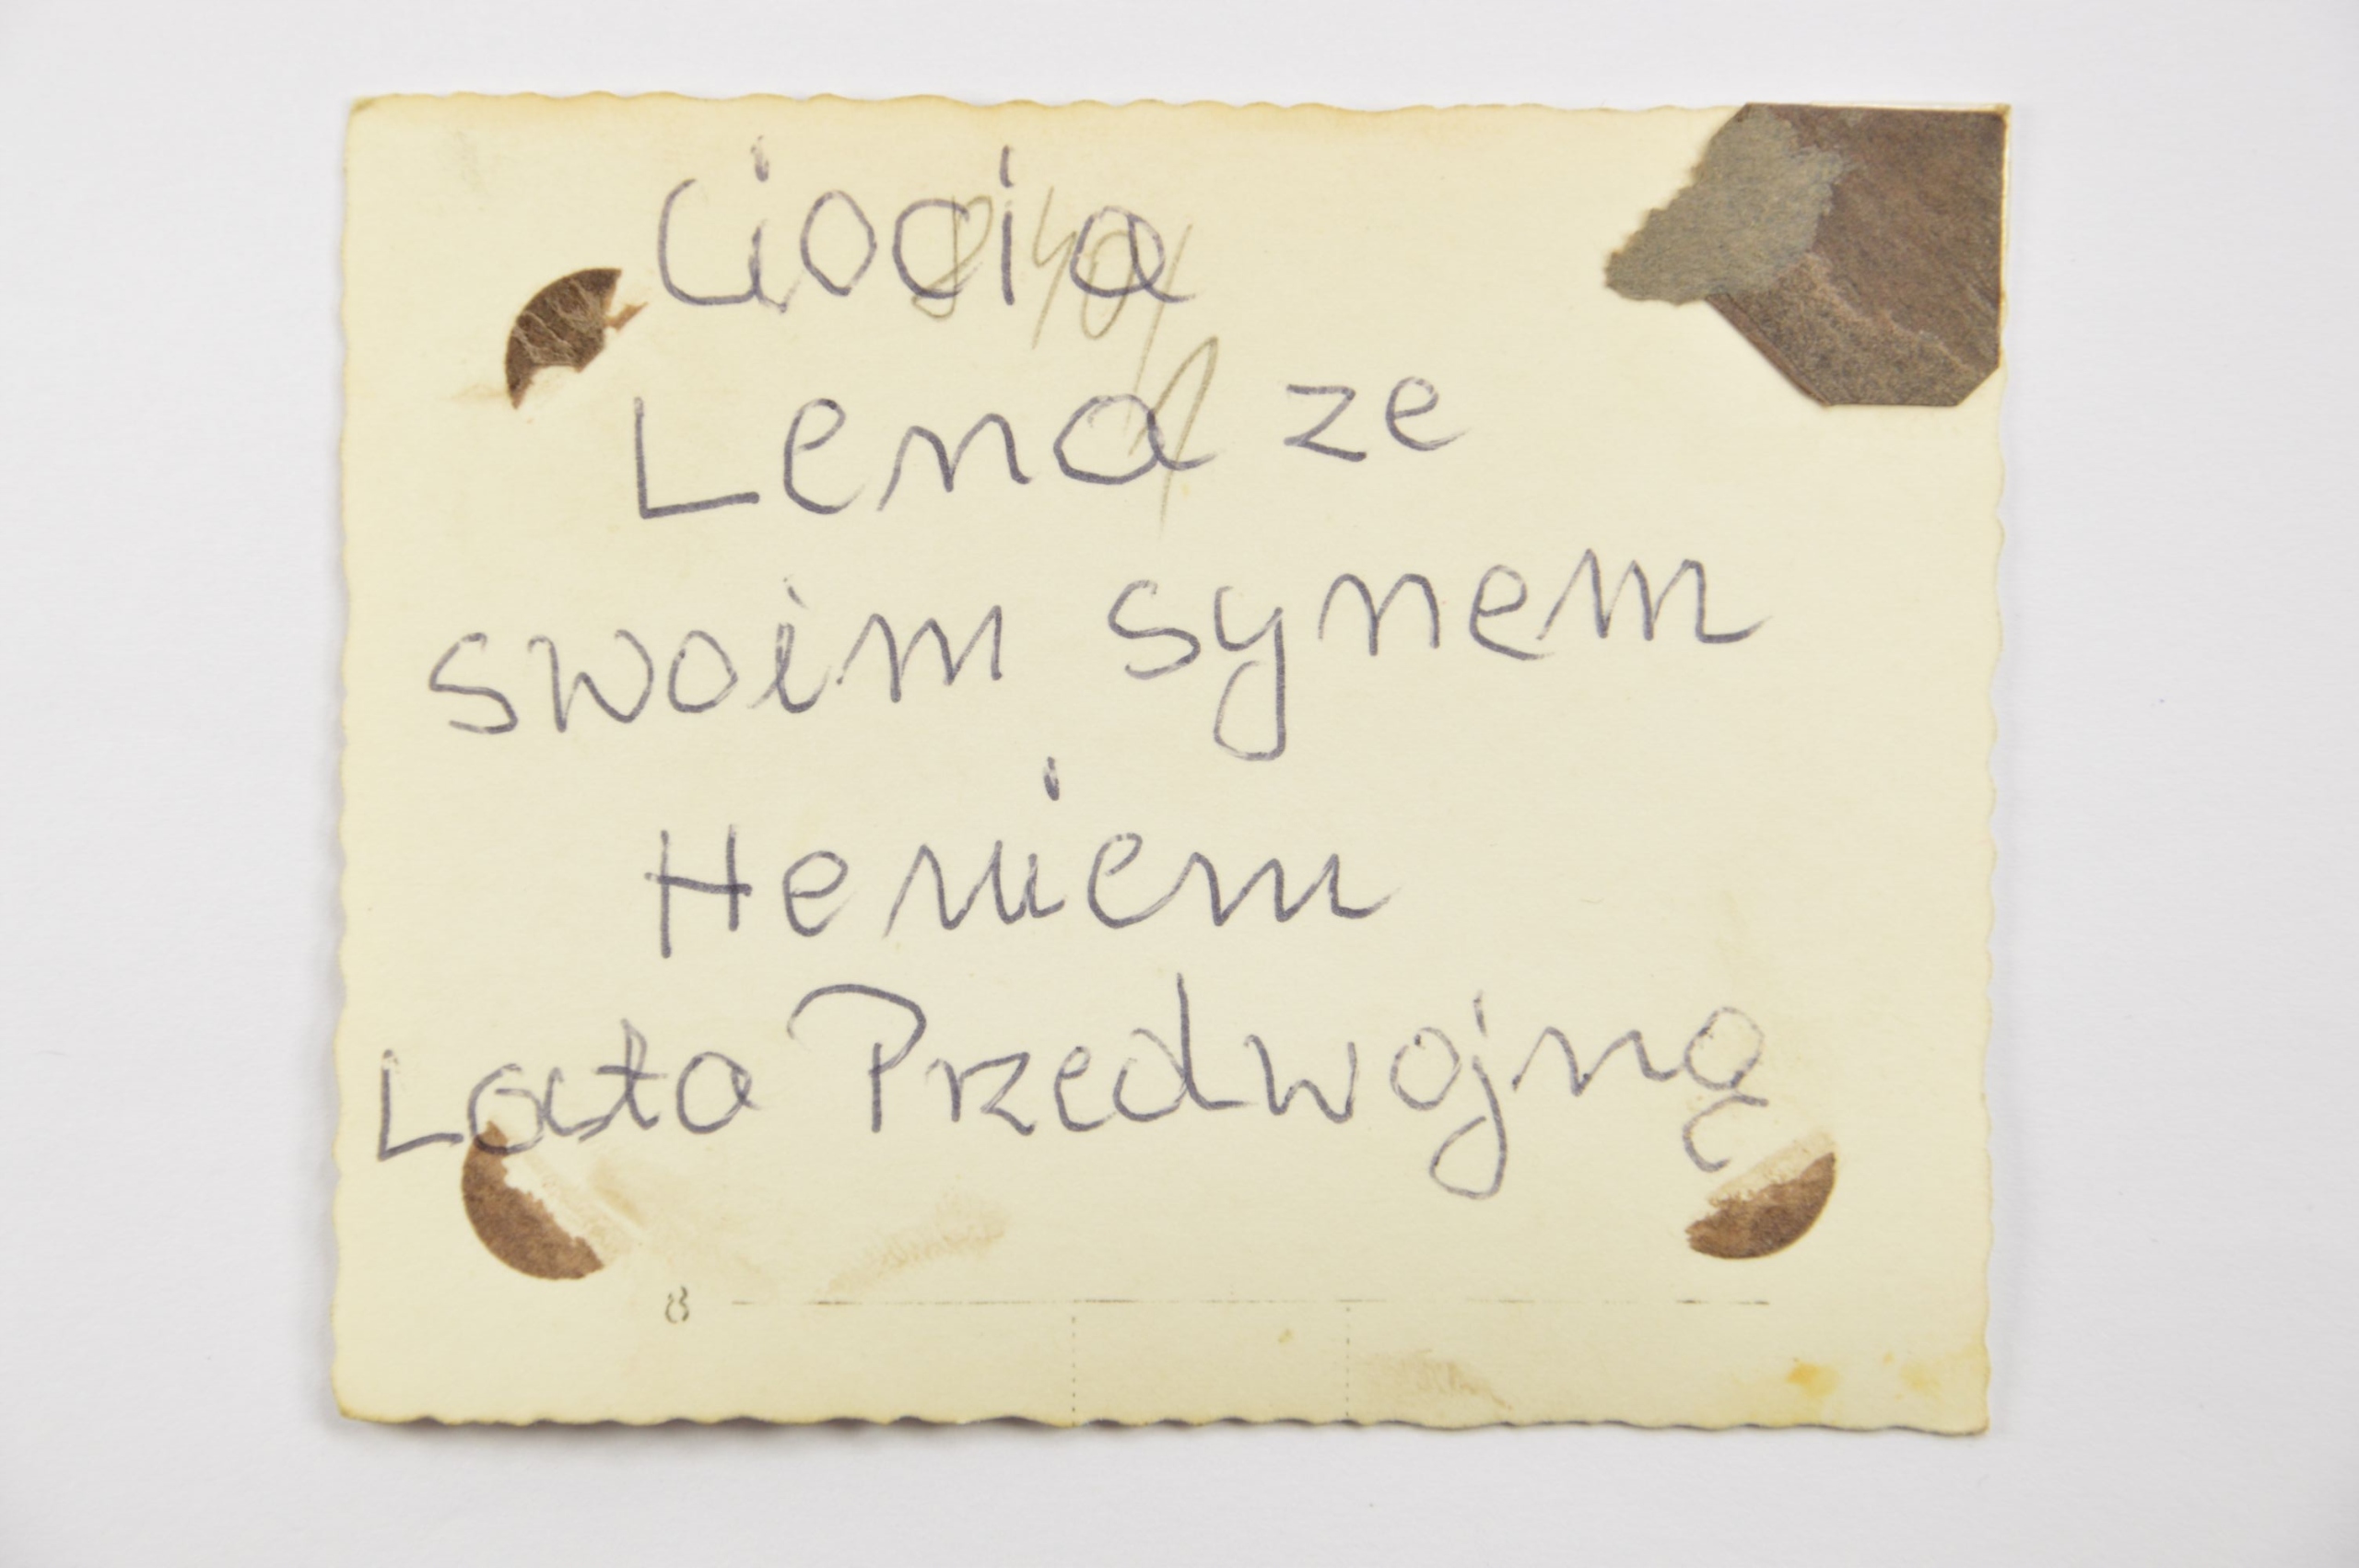 Ciocia
Lena ze
swoim synem
Heniem
Lata Przedwojną
8